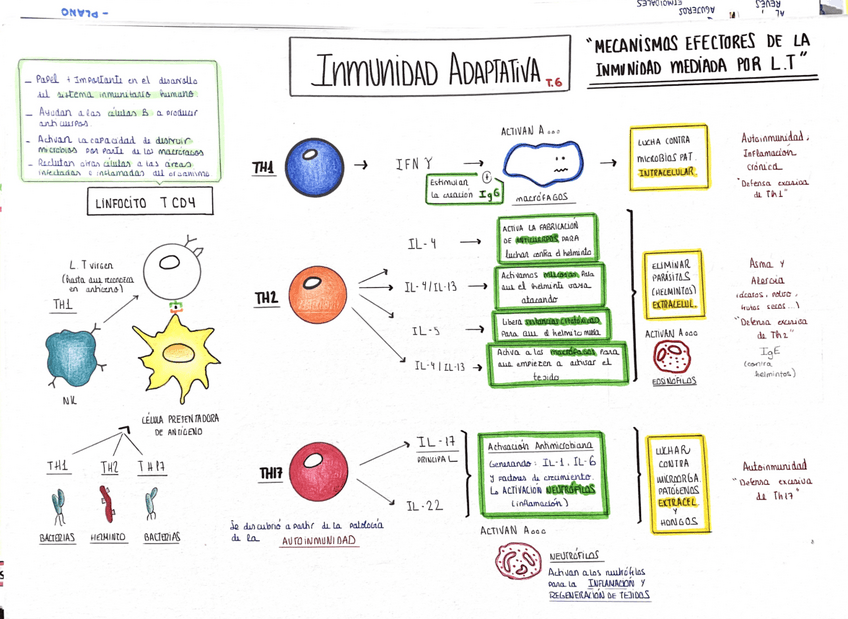 - PLANO
INMUNIDAD ADAPTATIVA T.6
"MECANISMOS EFECTORES DE LA
INMUNIDAD MEDIADA POR L.T"
- Papel + importante en el desarrollo
del sistema inmunitario humano.
- Ayudan a las células B a producir
anticuerpos.
- Activan la capacidad de destruir
microbios por parte de los macrófagos
- Reclutan otras células a las áreas
infectadas o inflamadas del organismo
LINFOCITO T CD4
L.T virgen
(hasta que reconozca
un antígeno)
TH1
NK
CÉLULA PRESENTADORA
DE ANTÍGENO
TH1 TH2 TH17
BACTERIAS HELMINTO BACTERIAS
TH1
IFN γ
ACTIVAN A...
Estimulan
la creación IgG
+
MACRÓFAGOS
LUCHA CONTRA
MICROBIOS PAT.
INTRACELULAR
Autoinmunidad,
Inflamación
crónica
"Defensa excesiva
de Th1"
TH2
IL-4
ACTIVA LA FABRICACIÓN
DE ANTICUERPOS PARA
luchar contra el helminto
IL-4/IL-13
Activamos mucosas para
que el helminto vaya
atacando
IL-5
Libera sustancias
para que el helminto muera
IL-4/IL-13
Activa a los macrófagos para
que empiecen a activar el
tejido
ELIMINAR
PARÁSITOS
(HELMINTOS)
EXTRACELUL.
ACTIVAN A...
EOSINÓFILOS
Asma y
Alergia
(ácaros, polvo,
frutos secos...)
"Defensa excesiva
de Th2"
IgE
(contra
helmintos)
TH17
IL-17
PRINCIPAL
IL-22
Activación Antimicrobiana
Generando: IL-1, IL-6
y factores de crecimiento.
La ACTIVACIÓN NEUTRÓFILOS
(inflamación)
LUCHAR
CONTRA
MICROORGA.
PATÓGENOS
EXTRACEL
Y
HONGOS.
Autoinmunidad
"Defensa excesiva
de Th17"
Se descubrió a partir de la patología
de la AUTOINMUNIDAD
ACTIVAN A...
NEUTRÓFILOS
Activan a los neutrófilos
para la INFLAMACIÓN Y
REGENERACIÓN DE TEJIDOS